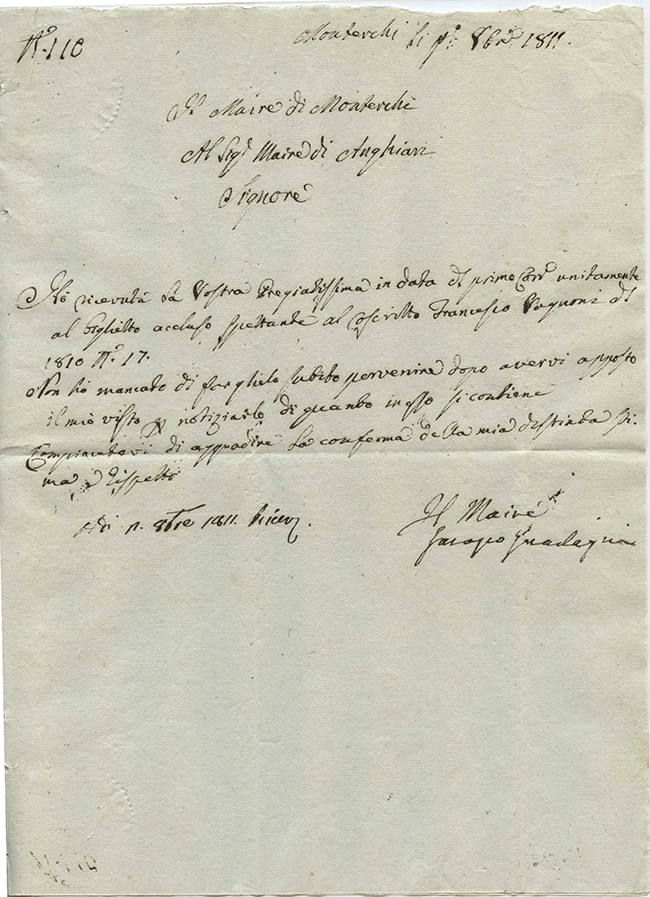 N.º 110
Monterchi li p.º 8brᵉ 1811.
Il Maire di Monterchi
Al Sigʳ Maire di Anghiari
Signore
Hò ricevuta la Vostra Pregiatissima in data di primo Corrᵉ unitamente
al Biglietto accluso spettante al coscritto Francesco Vagnoni di
1810 N.º 17.
Non hò mancato di farglielo subito pervenire dopo avervi apposto
il mio visto, e notiziarlo di quanto in esso si contiene
Compiacetevi di aggradire la conferma della mia distinta sti-
ma e rispetto
Adi 8bre 1811.
Il Maire
Guadagni